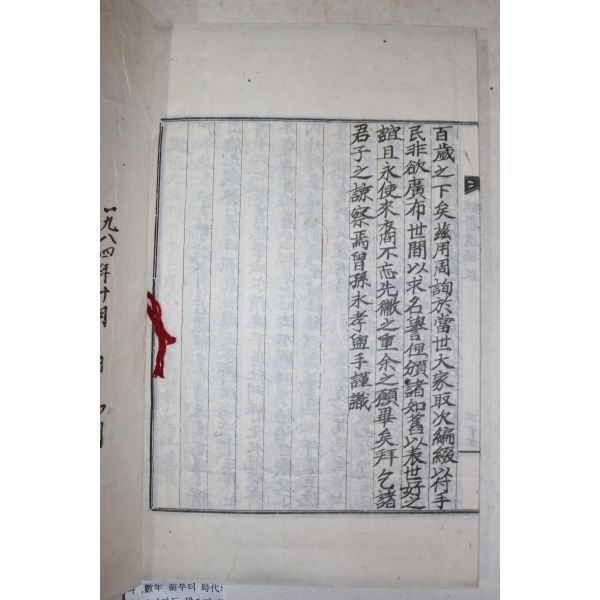 百歲之下矣玆用周詢於當世大家取次編綴以付手
民非欲廣布世間以求名譽但頒諸知舊以表世好之
誼且永使來裔不忘先徽之重余之願畢矣拜乞諸
君子之諒察焉曾孫永孝盥手謹識
一九八四年十月 日
數年 前부터 時代